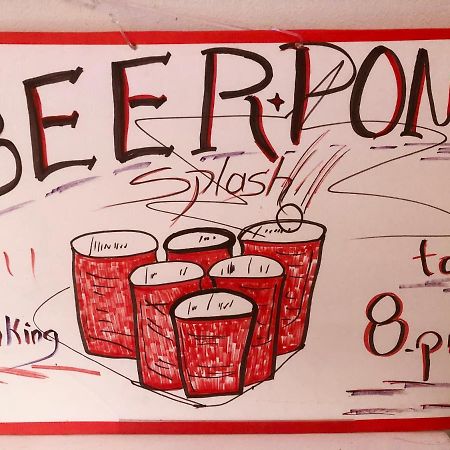 BEER PON
Splash!!
to
king
8-p